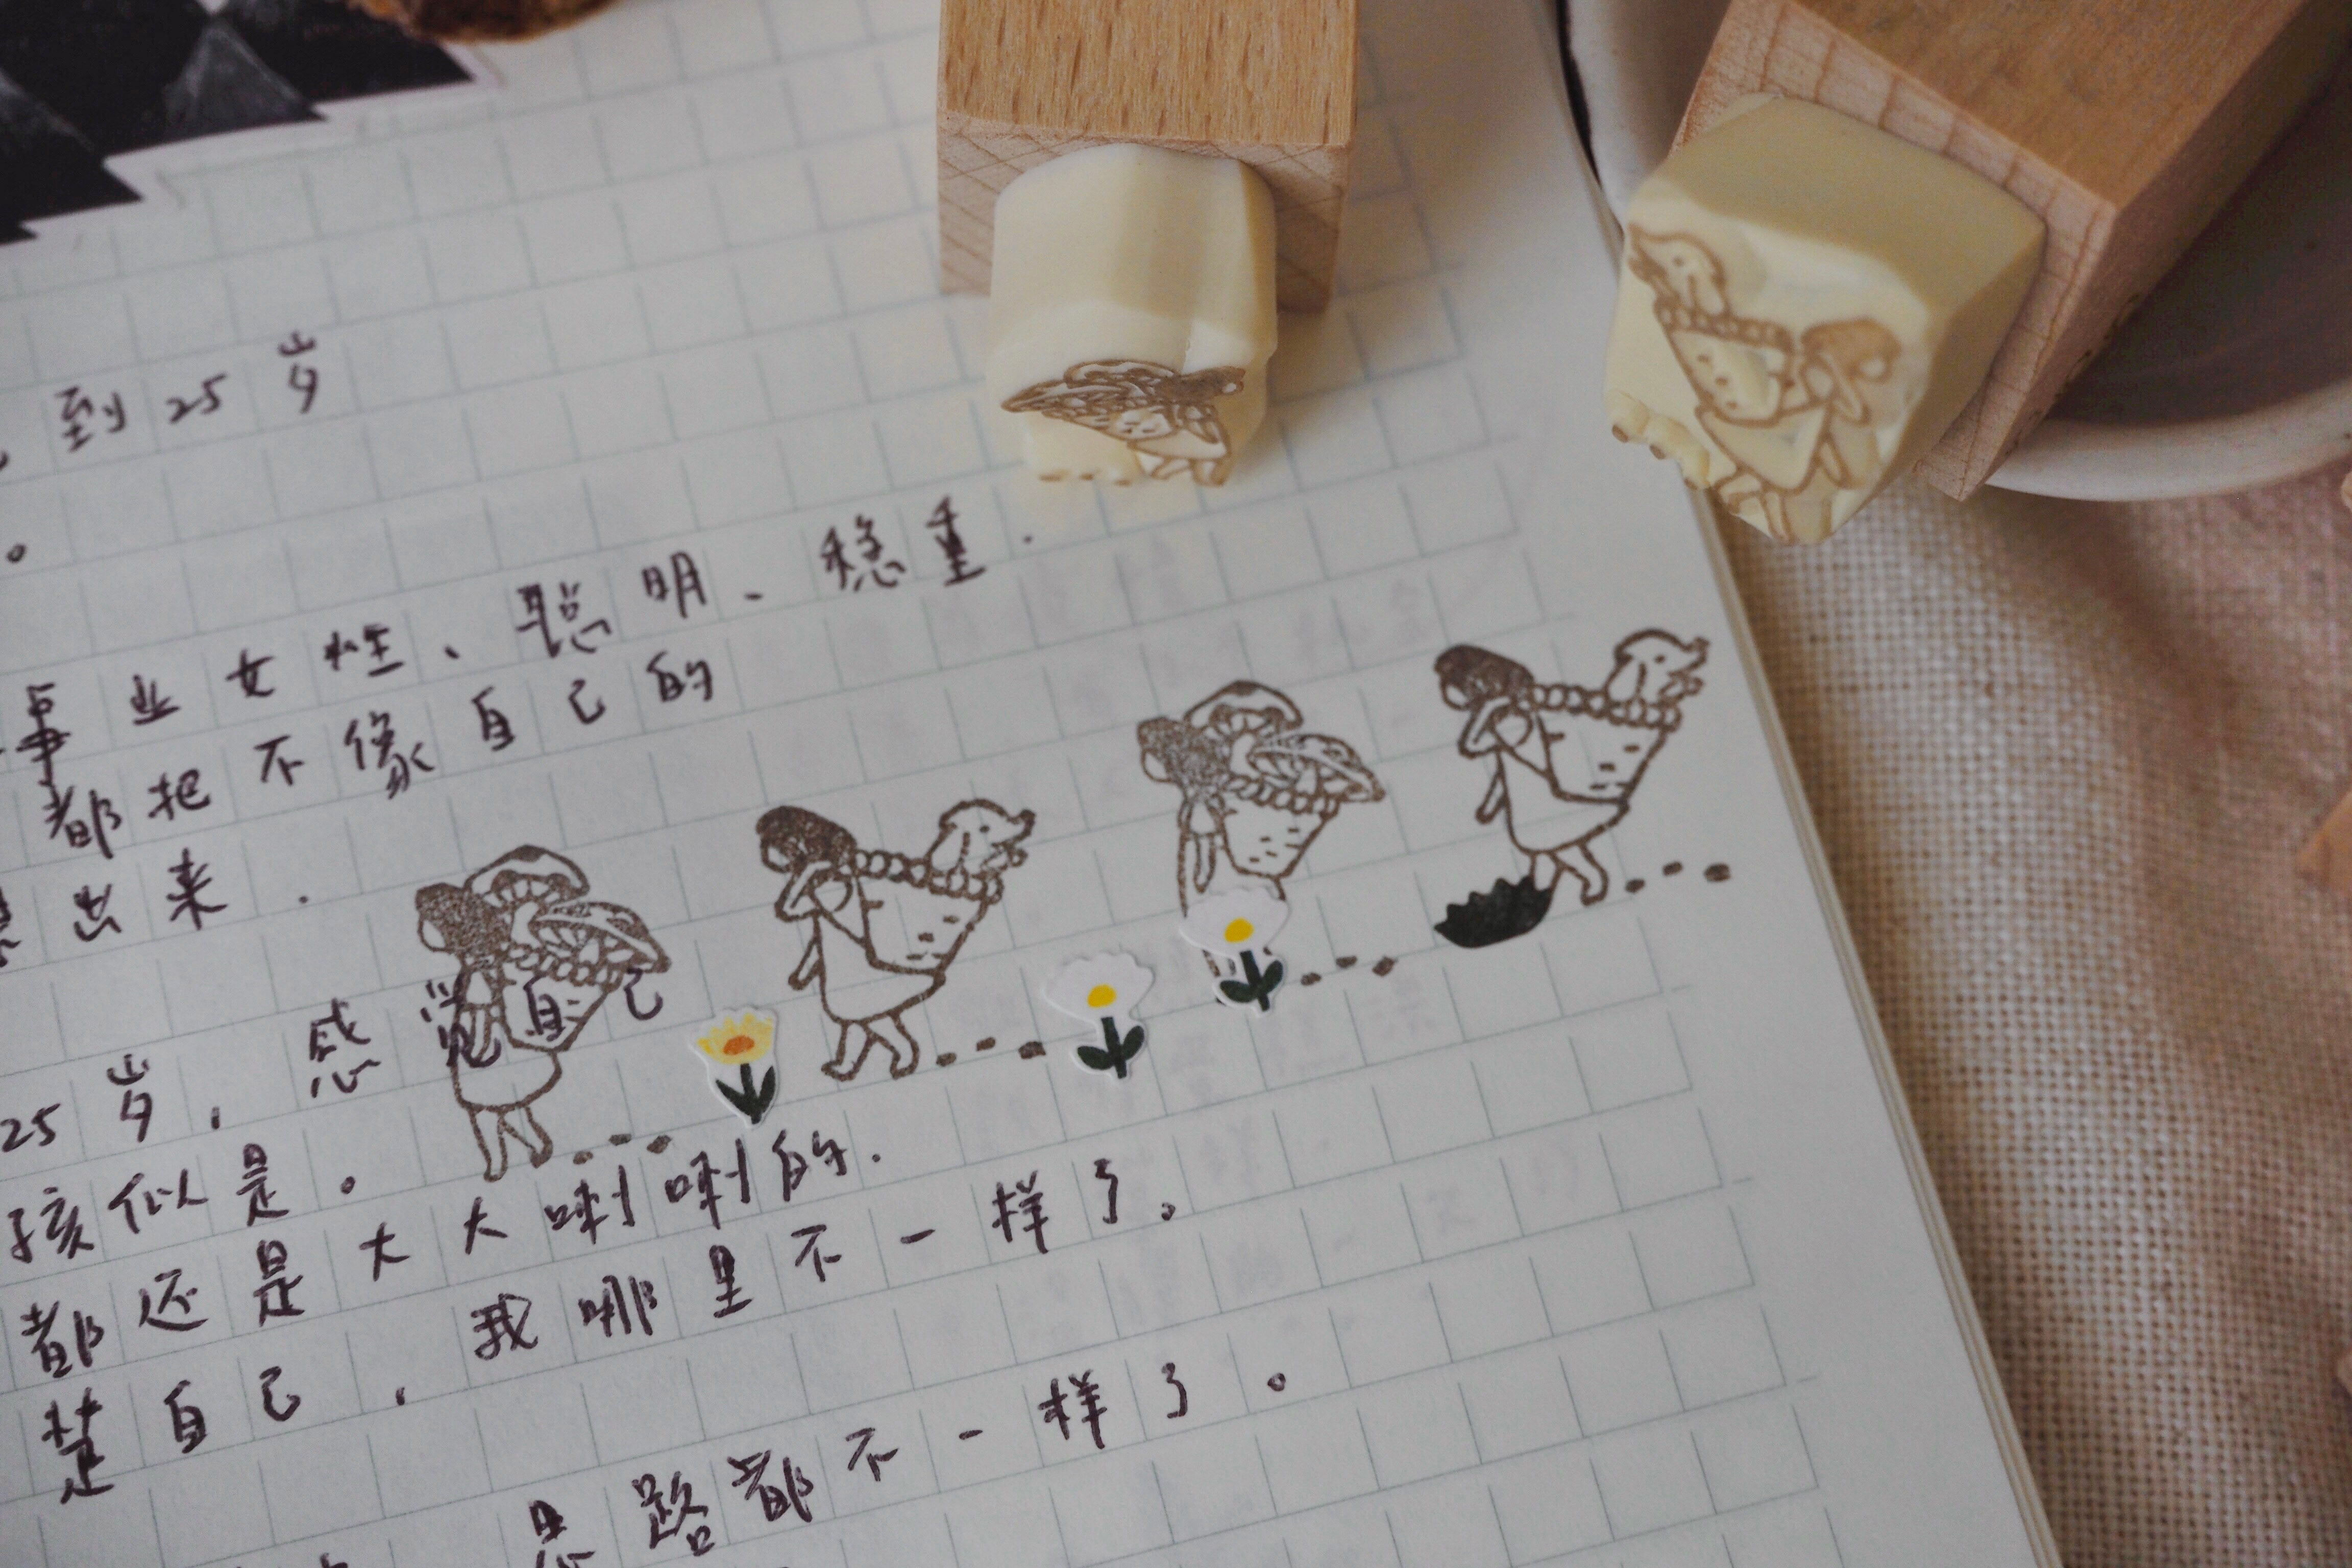 到25岁
。
事业女性、聪明、稳重.
都把不像自己的
出来.
25岁,感觉自己
孩似是。
都还是大大咧咧的.
楚自己,我哪里不一样了。
思路都不一样了。